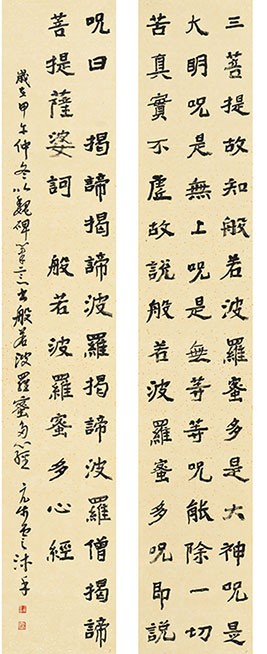 三菩提故知般若波羅蜜多是大神呪是
大明呪是無上呪是無等等呪能除一切
苦真實不虛故說般若波羅蜜多呪即說
呪曰 揭諦揭諦波羅揭諦波羅僧揭諦
菩提薩婆訶 般若波羅蜜多心經
歲在甲午仲冬以魏碑筆意書般若波羅蜜多心經 沐手